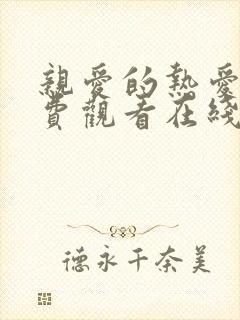 親愛的熱愛
費觀看在綫
德永千奈美